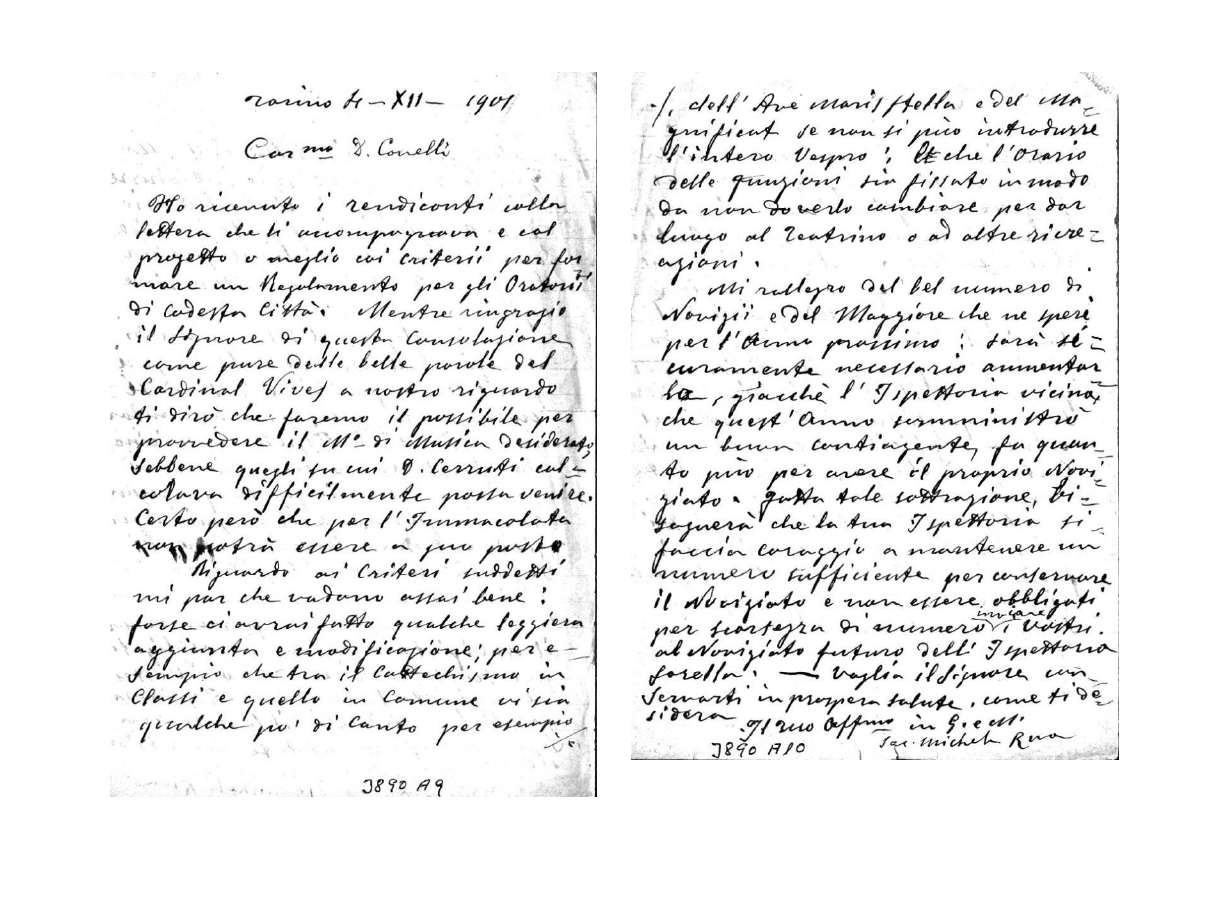 Torino 4-XII- 1901
Car.mo D. Conelli
Ho ricevuto i rendiconti colla
lettera che li accompagnava e col
progetto o meglio coi Criterii per for
mare un Regolamento per gli Oratorii
di codesta Città. Mentre ringrazio
il Signore di questa Consolazione
come pure delle belle parole del
Cardinal Vives a nostro riguardo
ti dirò che faremo il possibile per
provvedere il M.o di Musica desiderato,
sebbene quegli su cui D. Cerruti cal=
colava difficilmente possa venire.
Certo però che per l'Immacolata
non potrà essere a suo posto
Riguardo ai Criteri suddetti
mi par che vadano assai bene:
forse ci avrei fatto qualche leggiera
aggiunta e modificazione; per e-
sempio che tra il Cattechismo in
Classi e quello in Comune vi sia
qualche po' di Canto per esempio
./.
J890 A9
./. dell'Ave Maris Stella e del Ma=
gnificat se non si può introdurre
l'intero Vespro; che l'Orario
delle funzioni sia fissato in modo
da non doverlo cambiare per dar
luogo al Teatrino o ad altre ricre=
azioni.
Mi rallegro del bel numero di
Novizii e del Maggiore che ne speri
per l'Anno prossimo: sarà si=
curamente necessario aumentar
lo, giacchè l'Ispettoria vicina,
che quest'Anno somministrò
un buon contingente, fa quan=
to può per avere il proprio Novi=
ziato. Fatta tale sottrazione, bi=
sognerà che la tua Ispettoria si
faccia coraggio a mantenere un
numero sufficiente per conservare
il Noviziato e non essere obbligati
per scarsezza di numero inviare i vostri
al Noviziato futuro dell'Ispettoria
sorella. — Voglia il Signore con=
servarti in prospera salute, come ti de=
sidera
Il tuo Aff.mo in G. e M.
Sac. Michele Rua
J890 A10